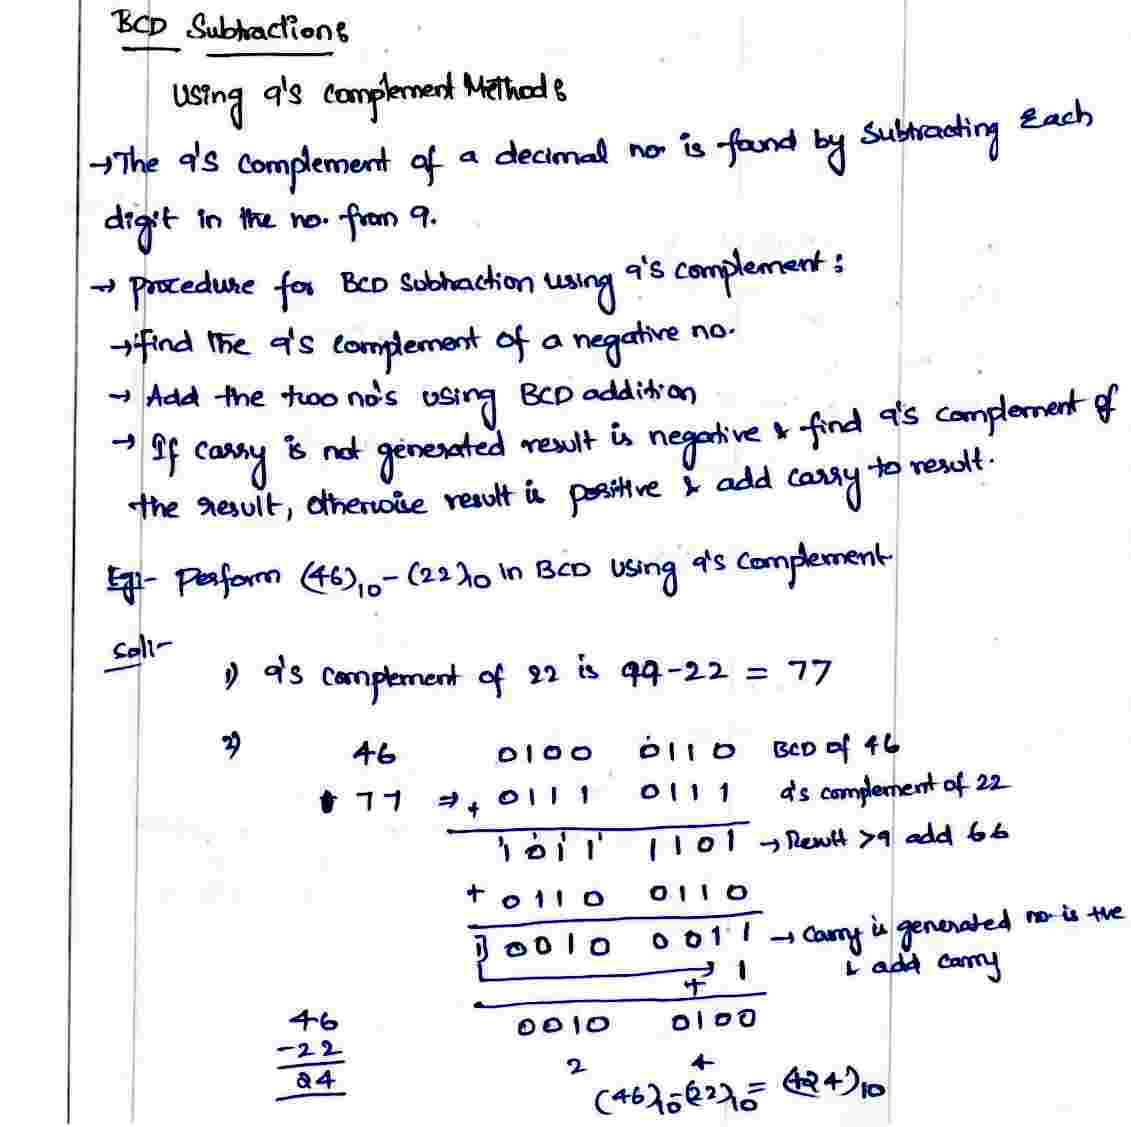 BCD Subtractions
Using 9's complement Methods
→ The 9's complement of a decimal no. is found by Subtracting Each
digit in the no. from 9.
→ procedure for BCD subtraction using 9's complement:
→ find the 9's complement of a negative no.
→ Add the two no's using BCD addition
→ If carry is not generated result is negative & find 9's complement of
the result, otherwise result is positive & add carry to result.
Eg:- Perform (46)10 - (22)10 in BCD using 9's complement
Sol:-
1) 9's complement of 22 is 99-22 = 77
2) 46 0100 0110 BCD of 46
77 ⇒ + 0111 0111 9's complement of 22
1011 1101 → Result >9 add 66
+ 0110 0110
1) 0010 0011 → carry is generated no. is +ve
+ 1 & add carry
46 0010 0100
-22 2 4
24 (46)10-(22)10 = (+24)10